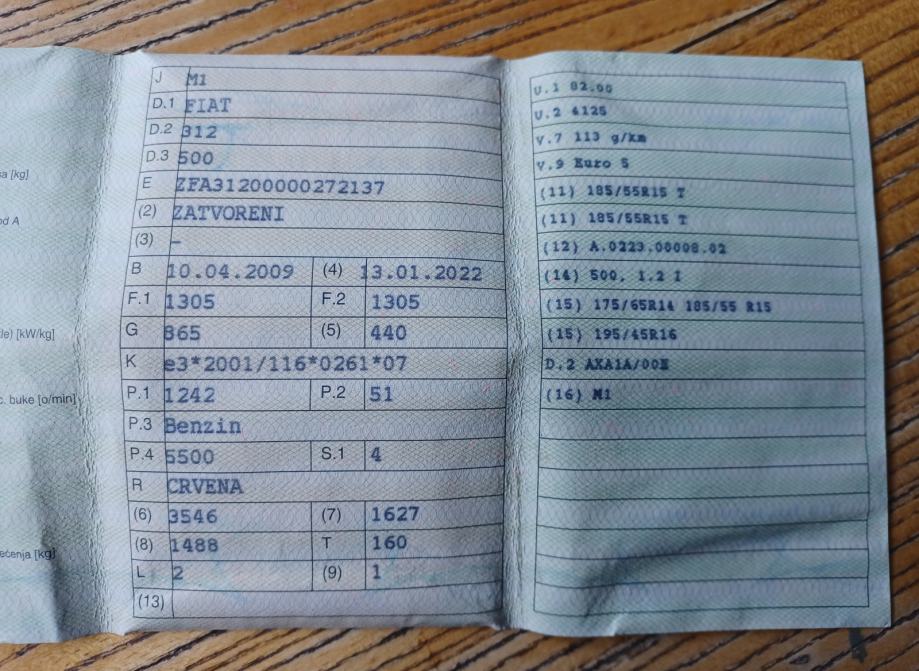 sa [kg]
od A
[kW/kg]
c. buke [o/min]
ećenja [kg]
J M1
D.1 FIAT
D.2 312
D.3 500
E ZFA31200000272137
(2) ZATVORENI
(3) –
B 10.04.2009 (4) 13.01.2022
F.1 1305 F.2 1305
G 865 (5) 440
K e3*2001/116*0261*07
P.1 1242 P.2 51
P.3 Benzin
P.4 5500 S.1 4
R CRVENA
(6) 3546 (7) 1627
(8) 1488 T 160
L 2 (9) 1
(13)
U.1 82.00
U.2 4125
V.7 113 g/km
V.9 Euro 5
(11) 185/55R15 T
(11) 185/55R15 T
(12) A.0223.00008.02
(14) 500, 1.2 I
(15) 175/65R14 185/55 R15
(15) 195/45R16
D.2 AXA1A/00E
(16) M1